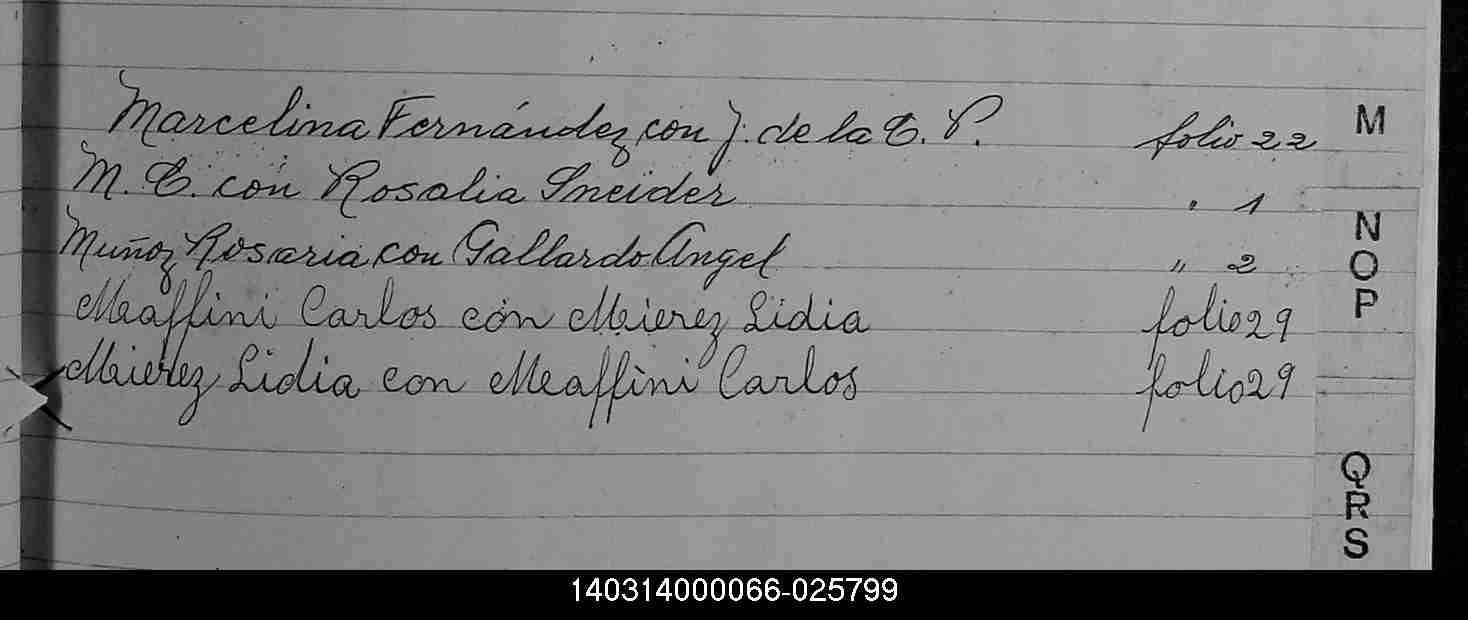 Marcelina Fernández con J. de la C. P. folio 22
M. C. con Rosalia Sneider " 1
Muñoz Rosaria con Gallardo Angel " 2
Maffini Carlos con Mierez Lidia folio 29
Mierez Lidia con Maffini Carlos folio 29
M
N
O
P
Q
R
S
140314000066-025799